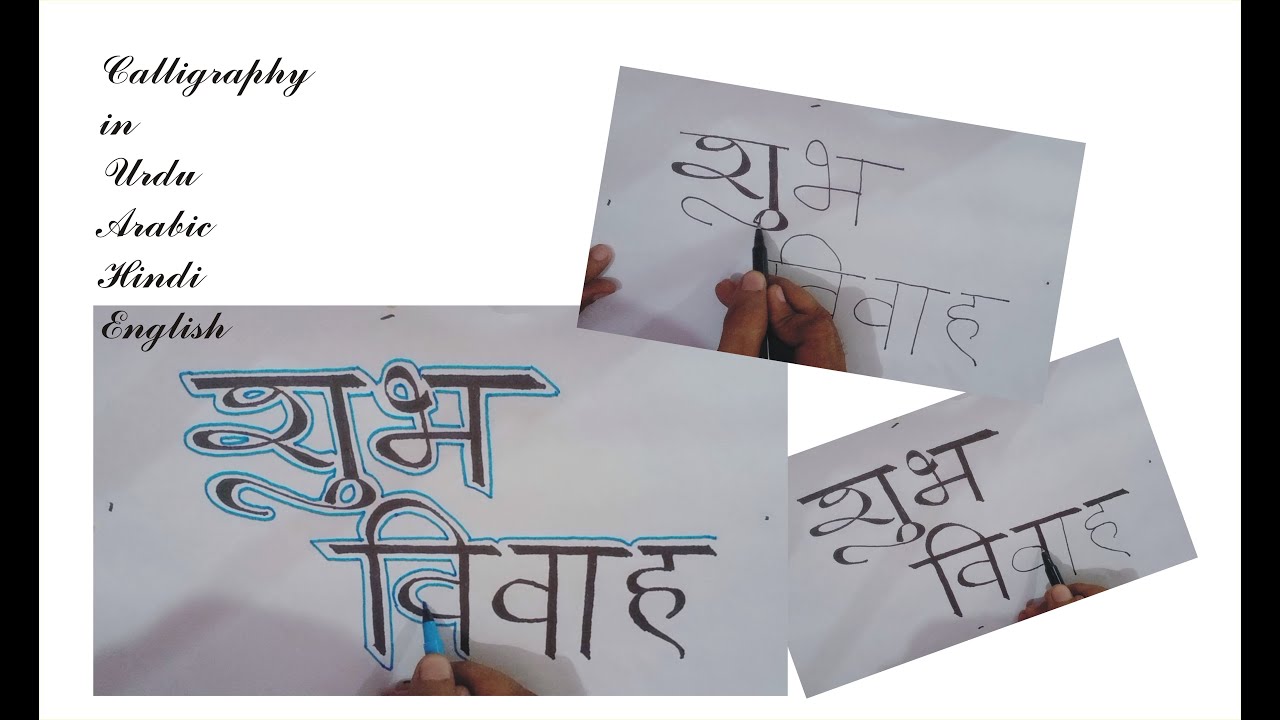 Calligraphy
in
Urdu
Arabic
Hindi
English
शुभ
विवाह
शुभ
विवाह
शुभ
विवाह